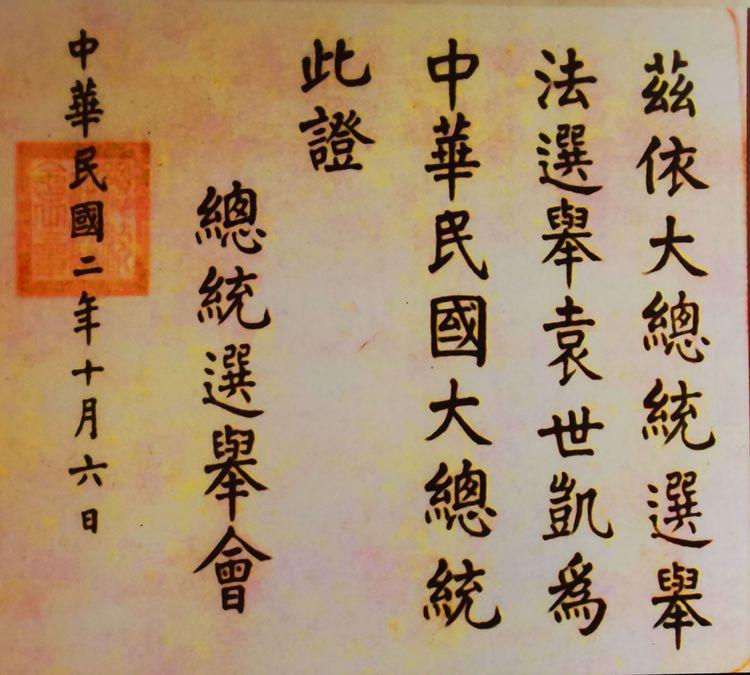 茲依大總統選舉
法選舉袁世凱爲
中華民國大總統
此證
總統選舉會
中華民國二年十月六日